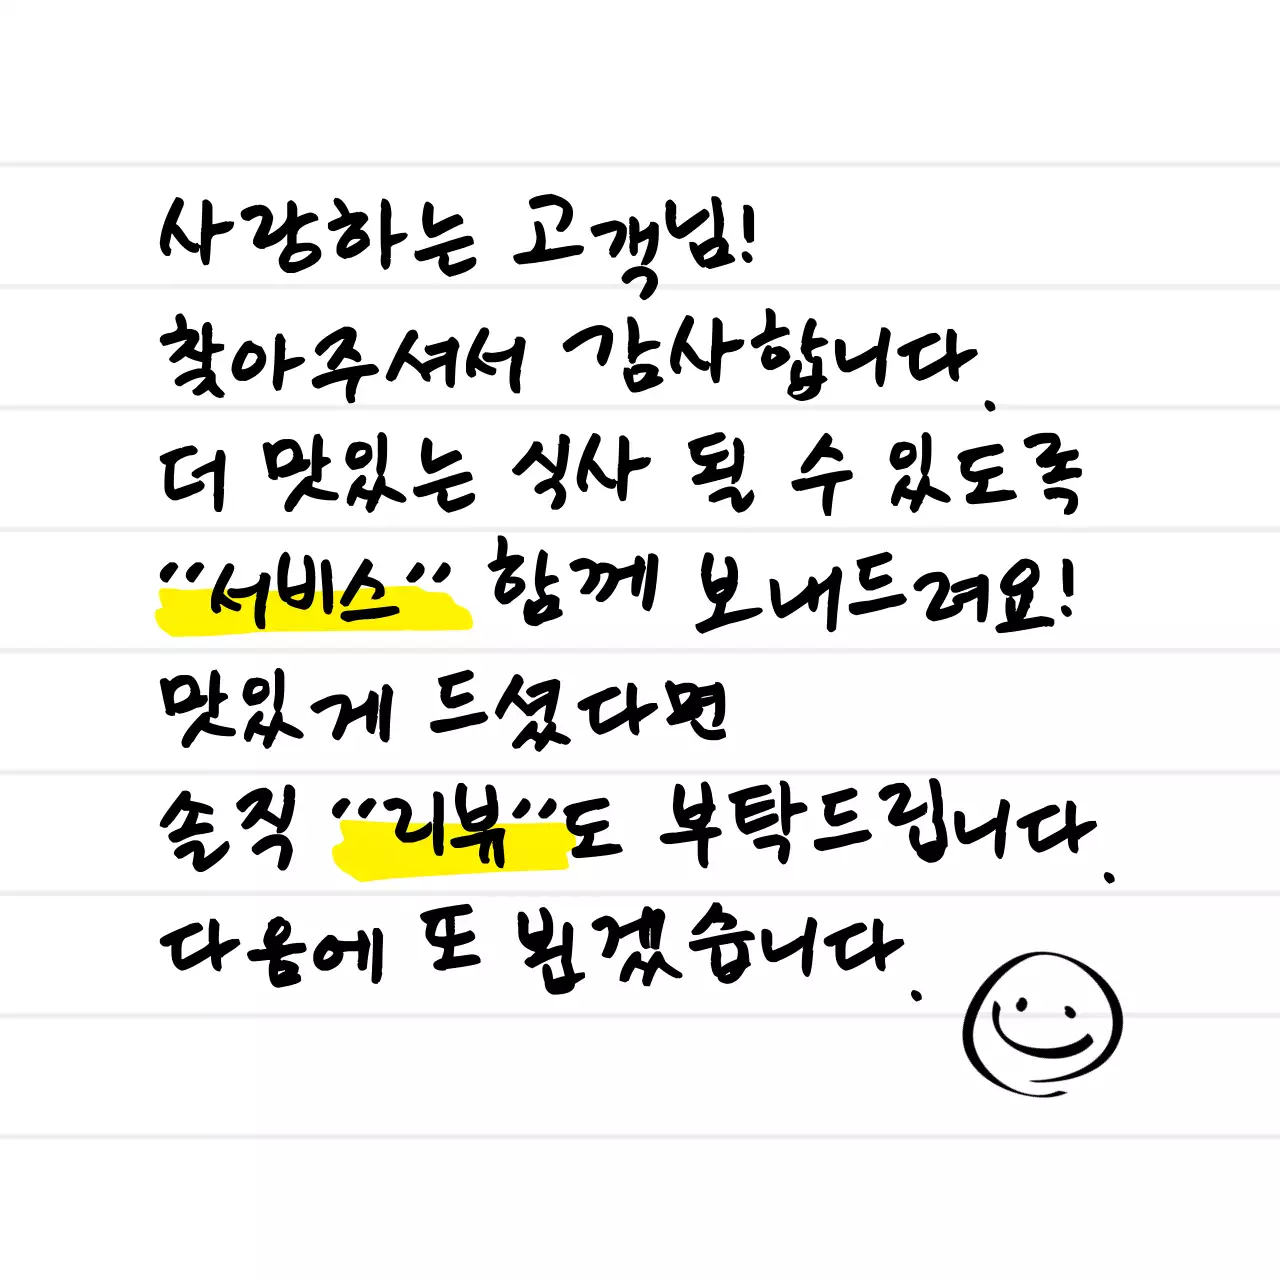 사랑하는 고객님!
찾아주셔서 감사합니다.
더 맛있는 식사 될 수 있도록
"서비스" 함께 보내드려요!
맛있게 드셨다면
솔직 "리뷰"도 부탁드립니다.
다음에 또 뵙겠습니다.